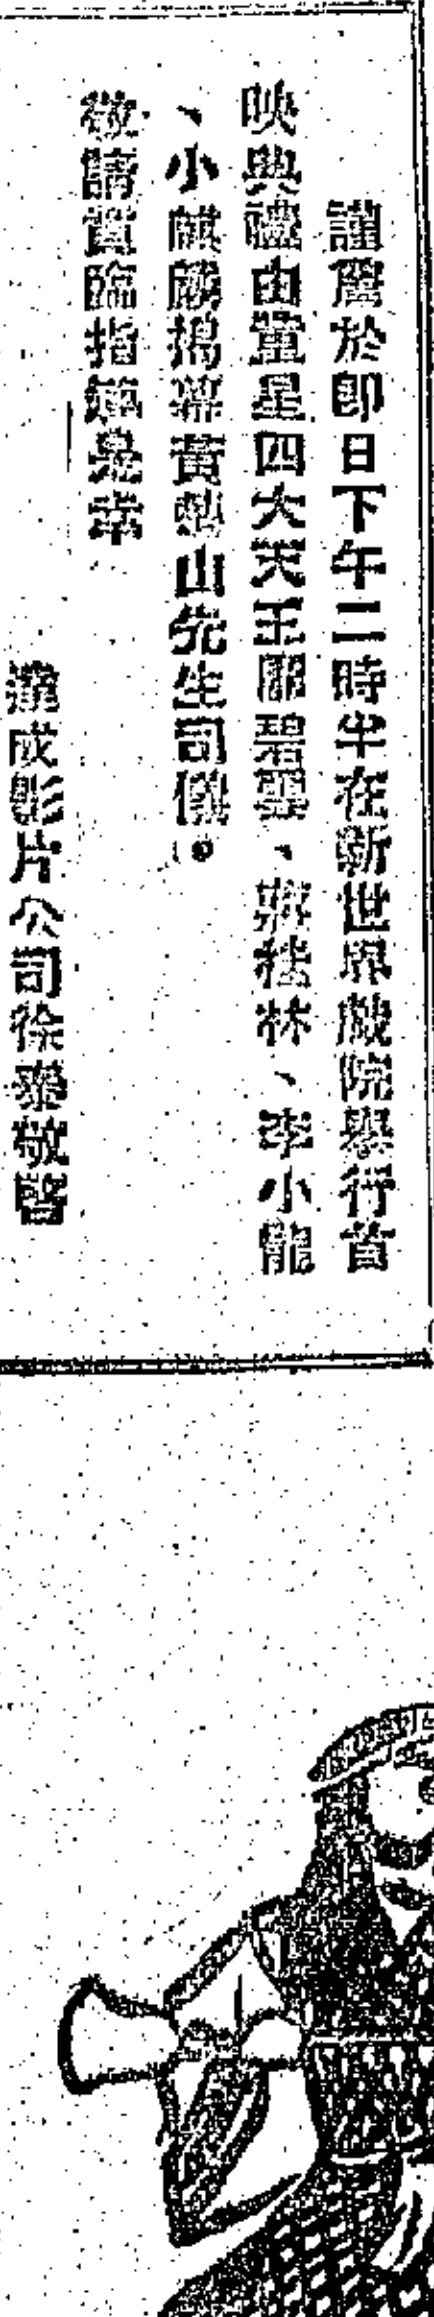 謹詹於即日下午二時半在新世界戲院舉行首
映典禮由童星四大天王鄢碧雲、張桂林、李小龍
、小麒麟揭幕黃楚山先生司儀。
敬請賁臨指導是幸
達成影片公司徐泰敬啓